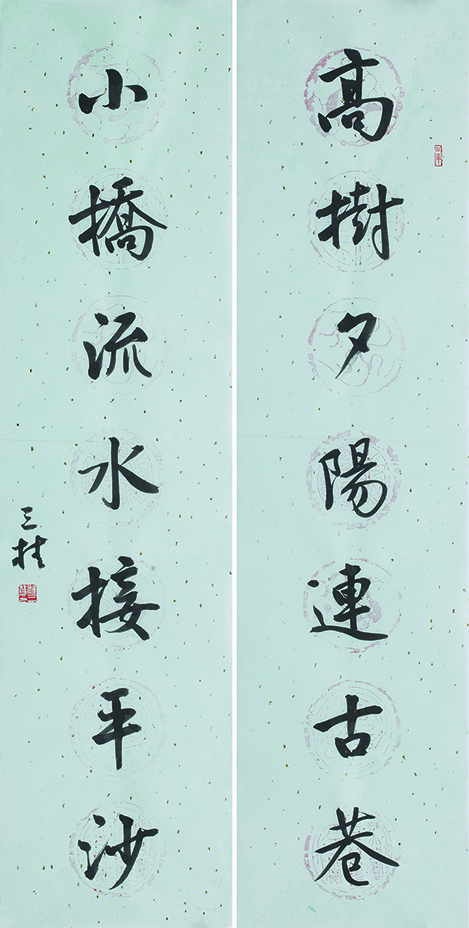 高樹夕陽連古巷
小橋流水接平沙
三桂